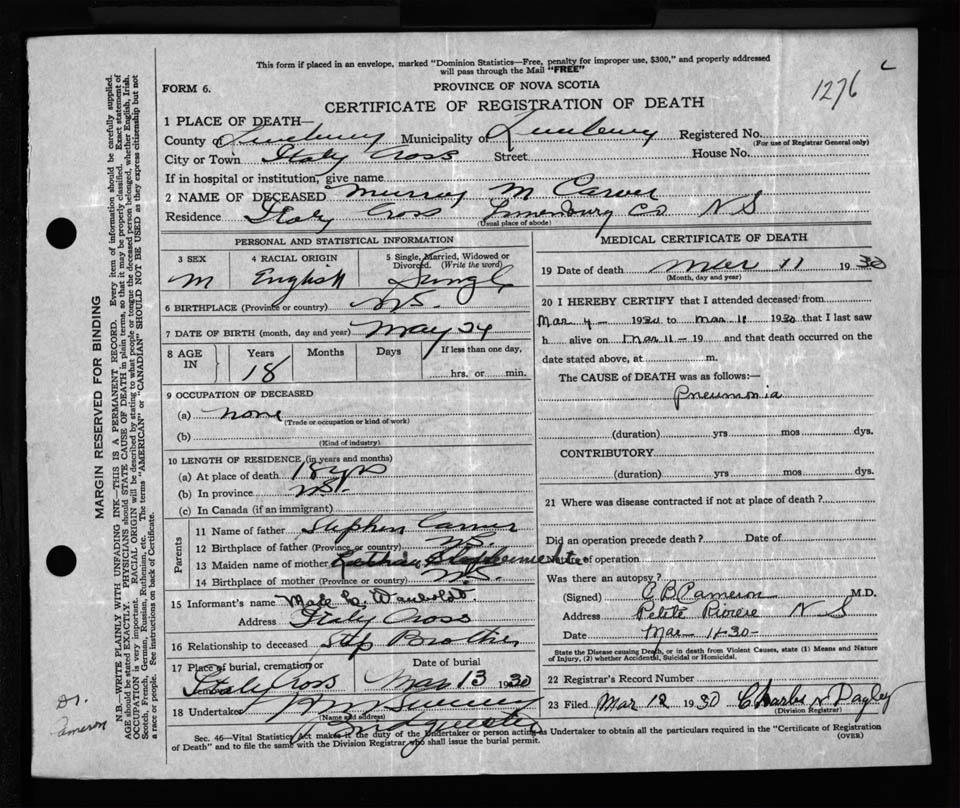 This form if placed in an envelope, marked "Dominion Statistics—Free, penalty for improper use, $300," and properly addressed
will pass through the Mail "FREE"
1276
FORM 6.
PROVINCE OF NOVA SCOTIA
CERTIFICATE OF REGISTRATION OF DEATH
1 PLACE OF DEATH—
County of Lunenburg Municipality of Lunenburg Registered No.
(For use of Registrar General only)
City or Town Italy Cross Street House No.
If in hospital or institution, give name
2 NAME OF DECEASED Murray M Carver
Residence Italy Cross Lunenburg Co N S
(Usual place of abode)
PERSONAL AND STATISTICAL INFORMATION
3 SEX 4 RACIAL ORIGIN 5 Single, Married, Widowed or
Divorced. (Write the word)
M English Single
6 BIRTHPLACE (Province or country) N S.
7 DATE OF BIRTH (month, day and year) May 24
8 AGE IN Years Months Days If less than one day,
18 hrs. or min.
9 OCCUPATION OF DECEASED
(a) none
(Trade or occupation or kind of work)
(b)
(Kind of industry)
10 LENGTH OF RESIDENCE (in years and months)
(a) At place of death 18 yrs
(b) In province N S.
(c) In Canada (if an immigrant)
Parents
11 Name of father Stephen Carver
12 Birthplace of father (Province or country) N S.
13 Maiden name of mother
14 Birthplace of mother (Province or country) N S.
15 Informant's name
Address Italy Cross
16 Relationship to deceased Step Brother
17 Place of burial, cremation or Date of burial
Italy Cross Mar 13 1930
18 Undertaker
(Name and address)
MEDICAL CERTIFICATE OF DEATH
19 Date of death Mar 11 1930
(Month, day and year)
20 I HEREBY CERTIFY that I attended deceased from
Mar 4 - 1930 to Mar 11 1930 that I last saw
h alive on Mar 11 - 19 and that death occurred on the
date stated above, at m.
The CAUSE of DEATH was as follows:—
Pneumonia
(duration) yrs mos dys.
CONTRIBUTORY
(duration) yrs mos dys.
21 Where was disease contracted if not at place of death?
Did an operation precede death? Date of
Nature of operation
Was there an autopsy?
(Signed) C B Cameron M.D.
Address Petite Riviere N S
Date Mar 11-30-
State the Disease causing Death, or in death from Violent Causes, state (1) Means and Nature
of Injury, (2) whether Accidental, Suicidal or Homicidal.
22 Registrar's Record Number
23 Filed Mar 12 1930 Charles N
(Division Registrar)
Sec. 46—Vital Statistics Act makes it the duty of the Undertaker or person acting as Undertaker to obtain all the particulars required in the "Certificate of Registration
of Death" and to file the same with the Division Registrar who shall issue the burial permit. (OVER)
MARGIN RESERVED FOR BINDING
N.B.—WRITE PLAINLY WITH UNFADING INK—THIS IS A PERMANENT RECORD. Every item of information should be carefully supplied.
AGE should be stated EXACTLY. PHYSICIANS should STATE CAUSE OF DEATH in plain terms, so that it may be properly classified. Exact statement of
OCCUPATION is very important. RACIAL ORIGIN will be described by stating to what people or tongue the deceased person belonged, whether English, Irish,
Scotch, French, German, Russian, Ruthenian, etc. The terms "AMERICAN" or "CANADIAN" SHOULD NOT BE USED as they express citizenship but not
a race or people. See instructions on back of Certificate.
Dr.